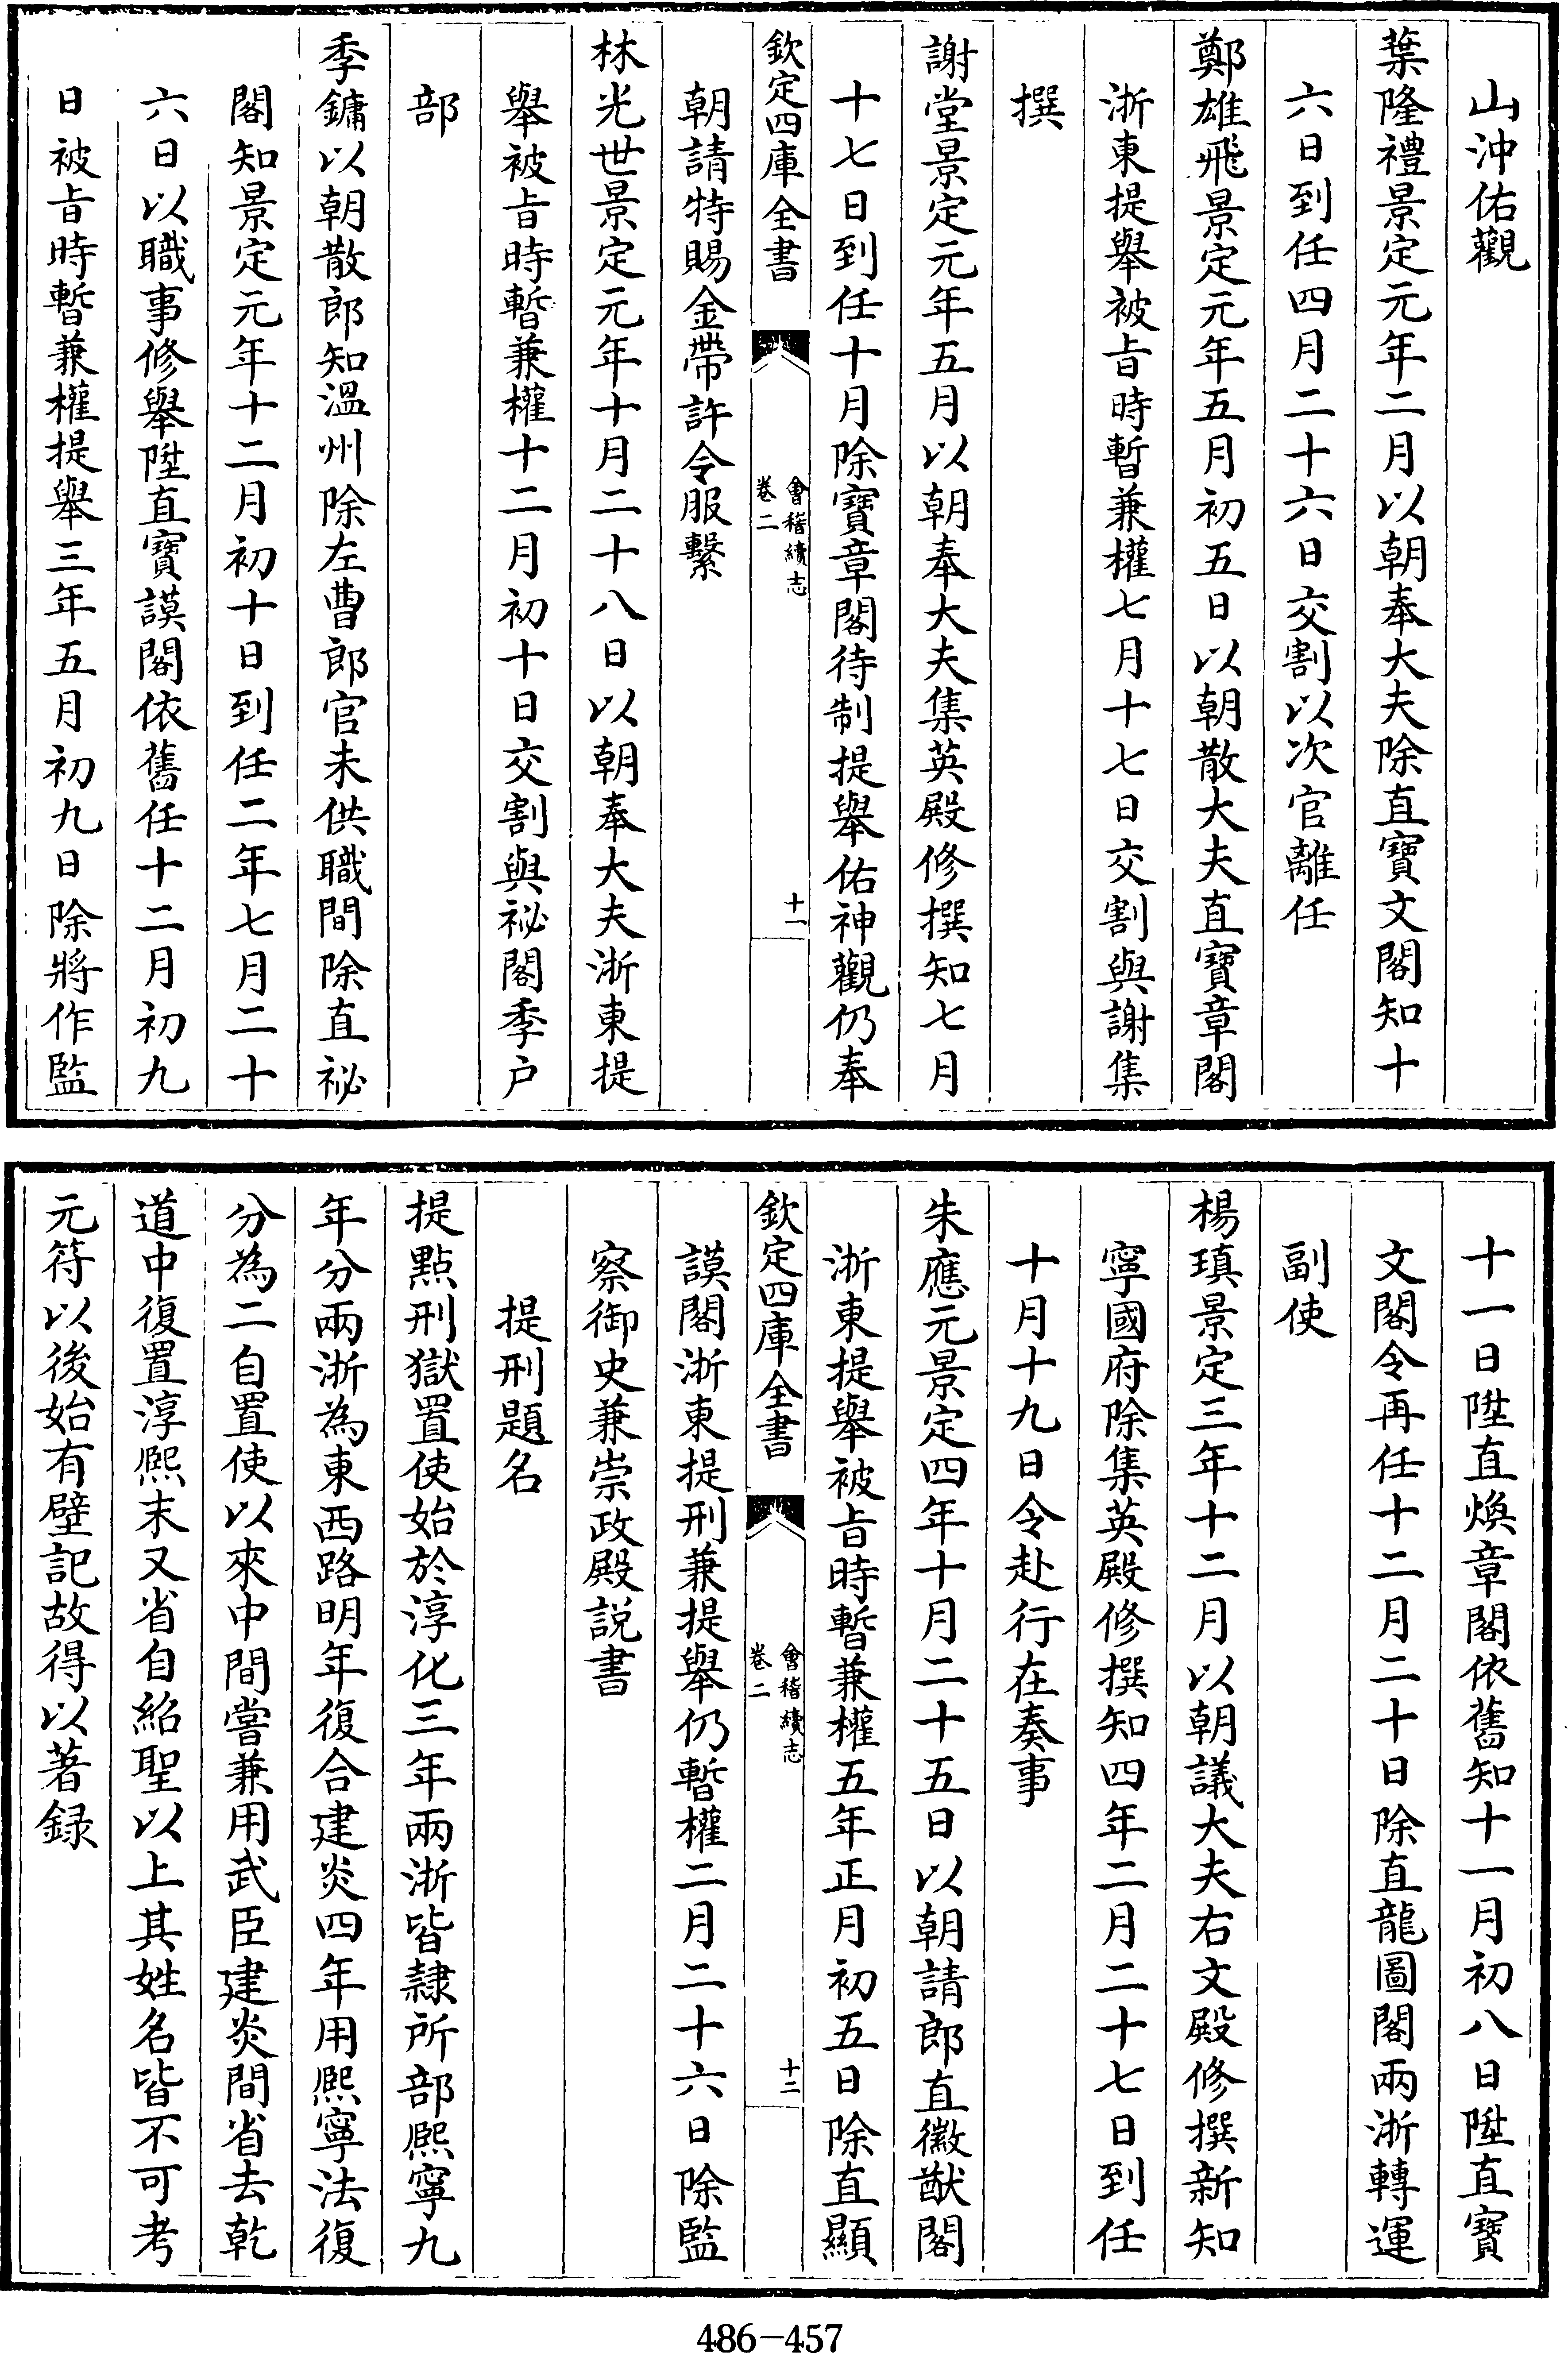 山沖佑觀
葉隆禮景定元年二月以朝奉大夫除直寶文閣知十
六日到任四月二十六日交割以次官離任
鄭雄飛景定元年五月初五日以朝散大夫直寶章閣
浙東提舉被㫖時暫兼權七月十七日交割與謝集
撰
謝堂景定元年五月以朝奉大夫集英殿修撰知七月
十七日到任十月除寶章閣待制提舉佑神觀仍奉
欽定四庫全書
會稽續志
卷二
十一
朝請特賜金帶許令服繫
林光世景定元年十月二十八日以朝奉大夫浙東提
舉被㫖時暫兼權十二月初十日交割與祕閣季户
部
季鏞以朝散郎知溫州除左曹郎官未供職間除直祕
閣知景定元年十二月初十日到任二年七月二十
六日以職事修舉陞直寶謨閣依舊任十二月初九
日被㫖時暫兼權提舉三年五月初九日除將作監
十一日陞直煥章閣依舊知十一月初八日陞直寶
文閣令再任十二月二十日除直龍圖閣兩浙轉運
副使
楊瑱景定三年十二月以朝議大夫右文殿修撰新知
寧國府除集英殿修撰知四年二月二十七日到任
十月十九日令赴行在奏事
朱應元景定四年十月二十五日以朝請郎直徽猷閣
浙東提舉被㫖時暫兼權五年正月初五日除直顯
欽定四庫全書
會稽續志
卷二
十二
謨閣浙東提刑兼提舉仍暫權二月二十六日除監
察御史兼崇政殿説書
提刑題名
提點刑獄置使始於淳化三年兩浙皆隷所部熙寧九
年分兩浙為東西路明年復合建炎四年用熙寧法復
分為二自置使以來中間嘗兼用武臣建炎間省去乾
道中復置淳熙末又省自紹聖以上其姓名皆不可考
元符以後始有壁記故得以著録
486-457